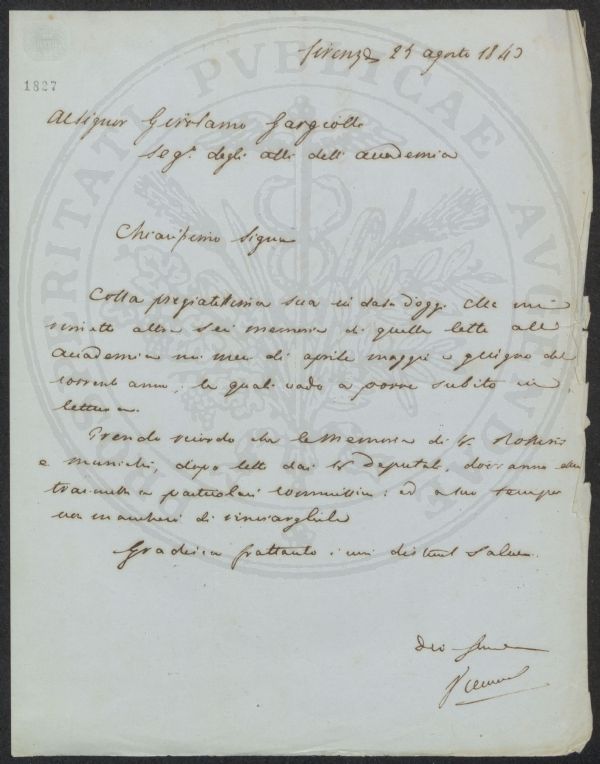 PROSPERITATI PUBLICAE AUGENDAE
1827
Firenze 25 agosto 1843
Al Signor Girolamo Gargiolli
Seg.° degli atti dell'accademia
Chiarissimo Signore
Colla pregiatissima sua in data d'oggi Ella mi
rimette altre sei memorie di quelle lette all'
accademia nei mesi di aprile maggio e giugno del
corrente anno, le quali vado a porre subito in
lettura.
Prendo ricordo che le memorie di
e dopo lette dai Deputati, dovranno
particolari ed a suo tempo
non mancherò di
Gradisca frattanto i miei distinti saluti.